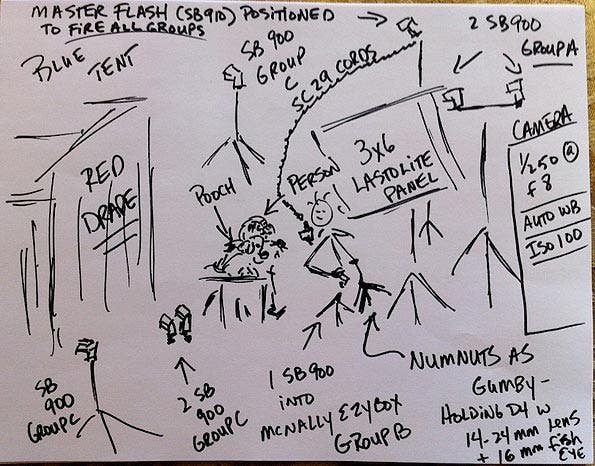 MASTER FLASH (SB910) POSITIONED
TO FIRE ALL GROUPS
BLUE TENT
SB 900
GROUP
C
SC 29 CORDS
2 SB900
GROUP A
RED
DRAPE
POOCH
PERSON
3x6
LASTOLITE
PANEL
CAMERA
1/250 @
f 8
AUTO WB
ISO 100
SB
900
GROUP C
2 SB
900
GROUP C
1 SB900
INTO
MCNALLY EZYBOX
GROUP B
NUMNUTS AS
GUMBY -
HOLDING D4 W
14-24 mm LENS
+ 16 mm FISH
EYE